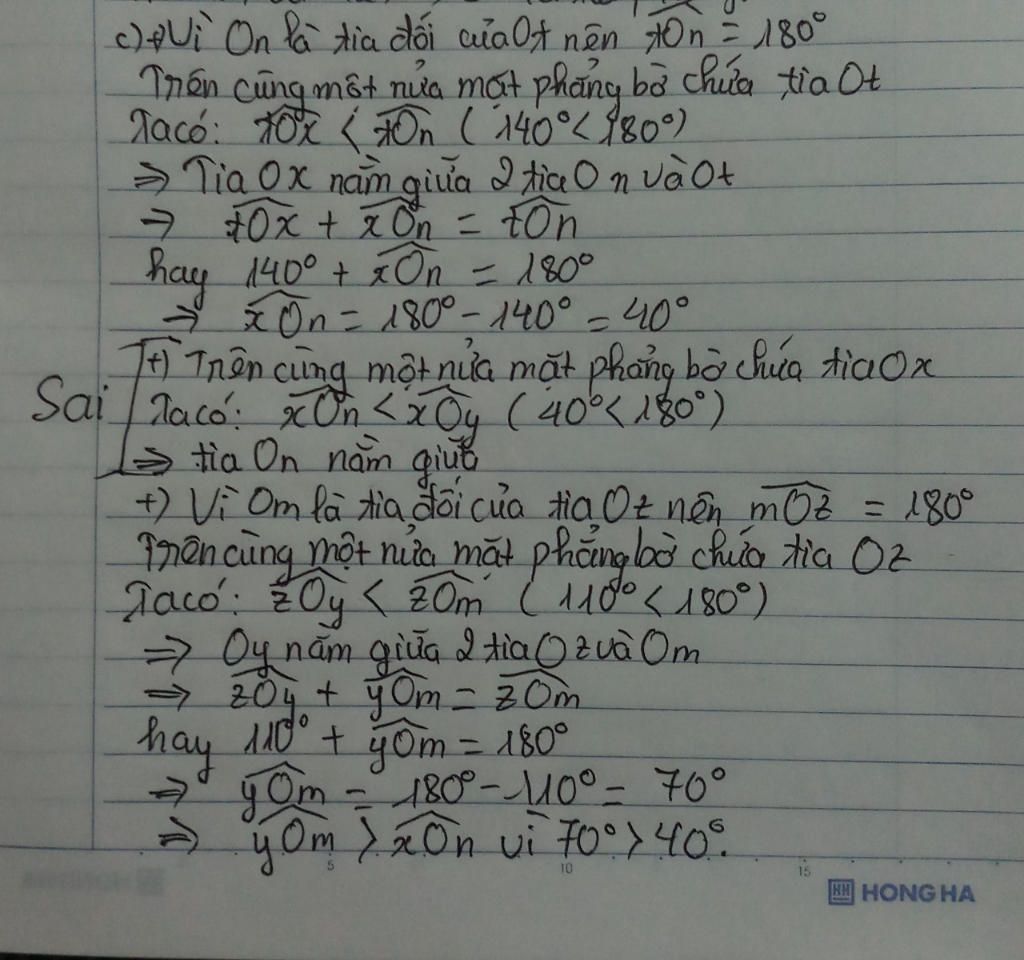 c) +) Vì On là tia đối của Ot nên tOn = 180°
Trên cùng một nửa mặt phẳng bờ chứa tia Ot
Ta có: tOx < tOn ( 140° < 180°)
⇒ Tia Ox nằm giữa 2 tia On và Ot
⇒ tOx + xOn = tOn
hay 140° + xOn = 180°
⇒ xOn = 180° - 140° = 40°
+) Trên cùng một nửa mặt phẳng bờ chứa tia Ox
Sai Ta có: xOn < xOy ( 40° < 180°)
⇒ tia On nằm giữa
+) Vì Om là tia đối của tia Oz nên mOz = 180°
Trên cùng một nửa mặt phẳng bờ chứa tia Oz
Ta có: zOy < zOm ( 110° < 180°)
⇒ Oy nằm giữa 2 tia Oz và Om
⇒ zOy + yOm = zOm
hay 110° + yOm = 180°
⇒ yOm = 180° - 110° = 70°
⇒ yOm > xOn vì 70° > 40°.
5 10 15
HH HONG HA